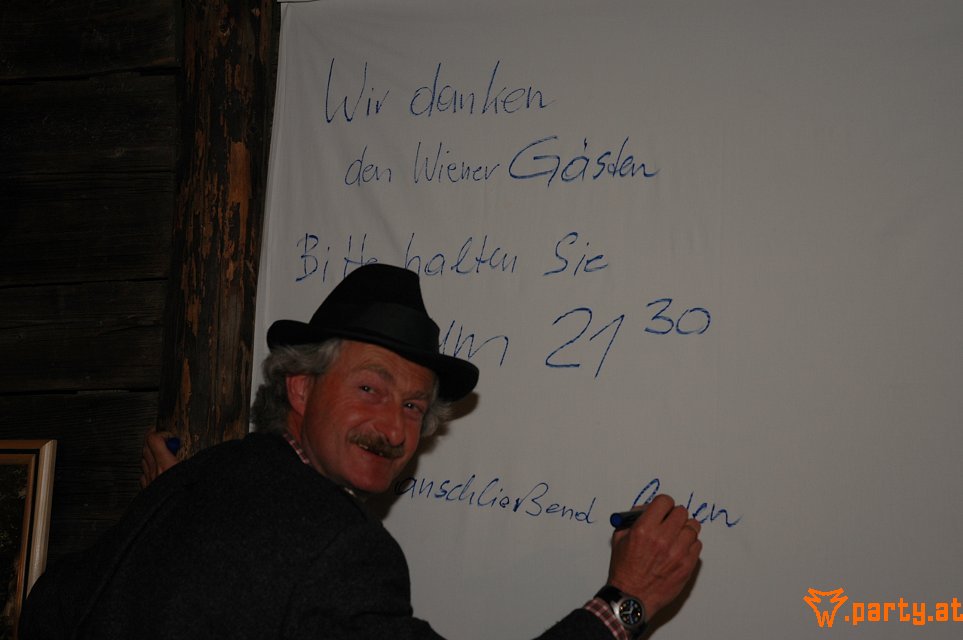 Wir danken
den Wiener Gästen
Bitte halten Sie
um 21 30
anschließend
.party.at